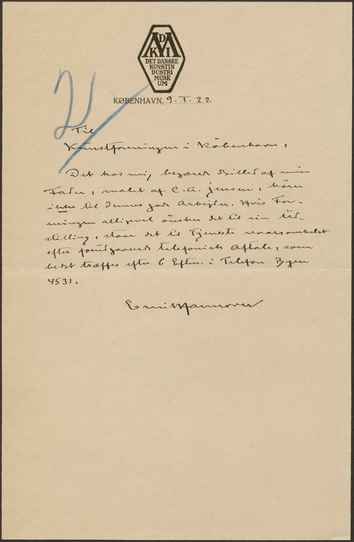 DET DANSKE
KUNSTIN
DUSTRI
MUSE
UM
KØBENHAVN, 9. I. 22.
Til
Kunstforeningen i København.
Det hos mig beroende Billed af min
Fader, malet af C. A. Jensen, hører
ikke til Jennes gode Arbejder. Hvis For-
eningen alligevel ønsker det til sin Ud-
stilling, staar det til Tjeneste
efter forudgaaende telefonisk Aftale, som
bedst træffes efter 6 Eftm. i Telefon Byen
4531.
Emil Hannover